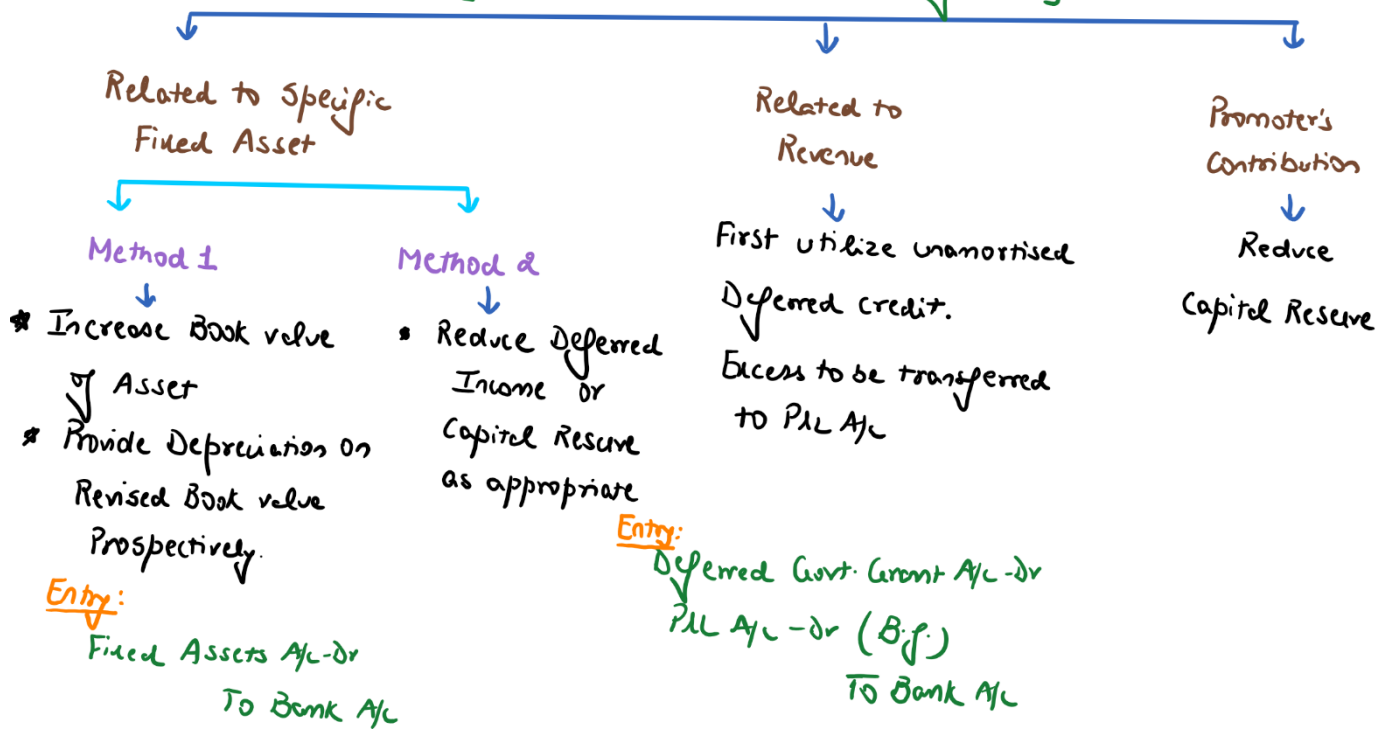 Related to Specific
Fixed Asset
Method 1
* Increase Book value
of Asset
* Provide Depreciation on
Revised Book value
Prospectively.
Entry:
Fixed Assets A/c-Dr
To Bank A/c
Method 2
• Reduce Deferred
Income or
Capital Reserve
as appropriate
Related to
Revenue
First utilize unamortised
Deferred credit.
Excess to be transferred
to P&L A/c
Entry:
Deferred Govt. Grant A/c-Dr
P&L A/c-Dr (B.f.)
To Bank A/c
Promoter's
Contribution
Reduce
Capital Reserve